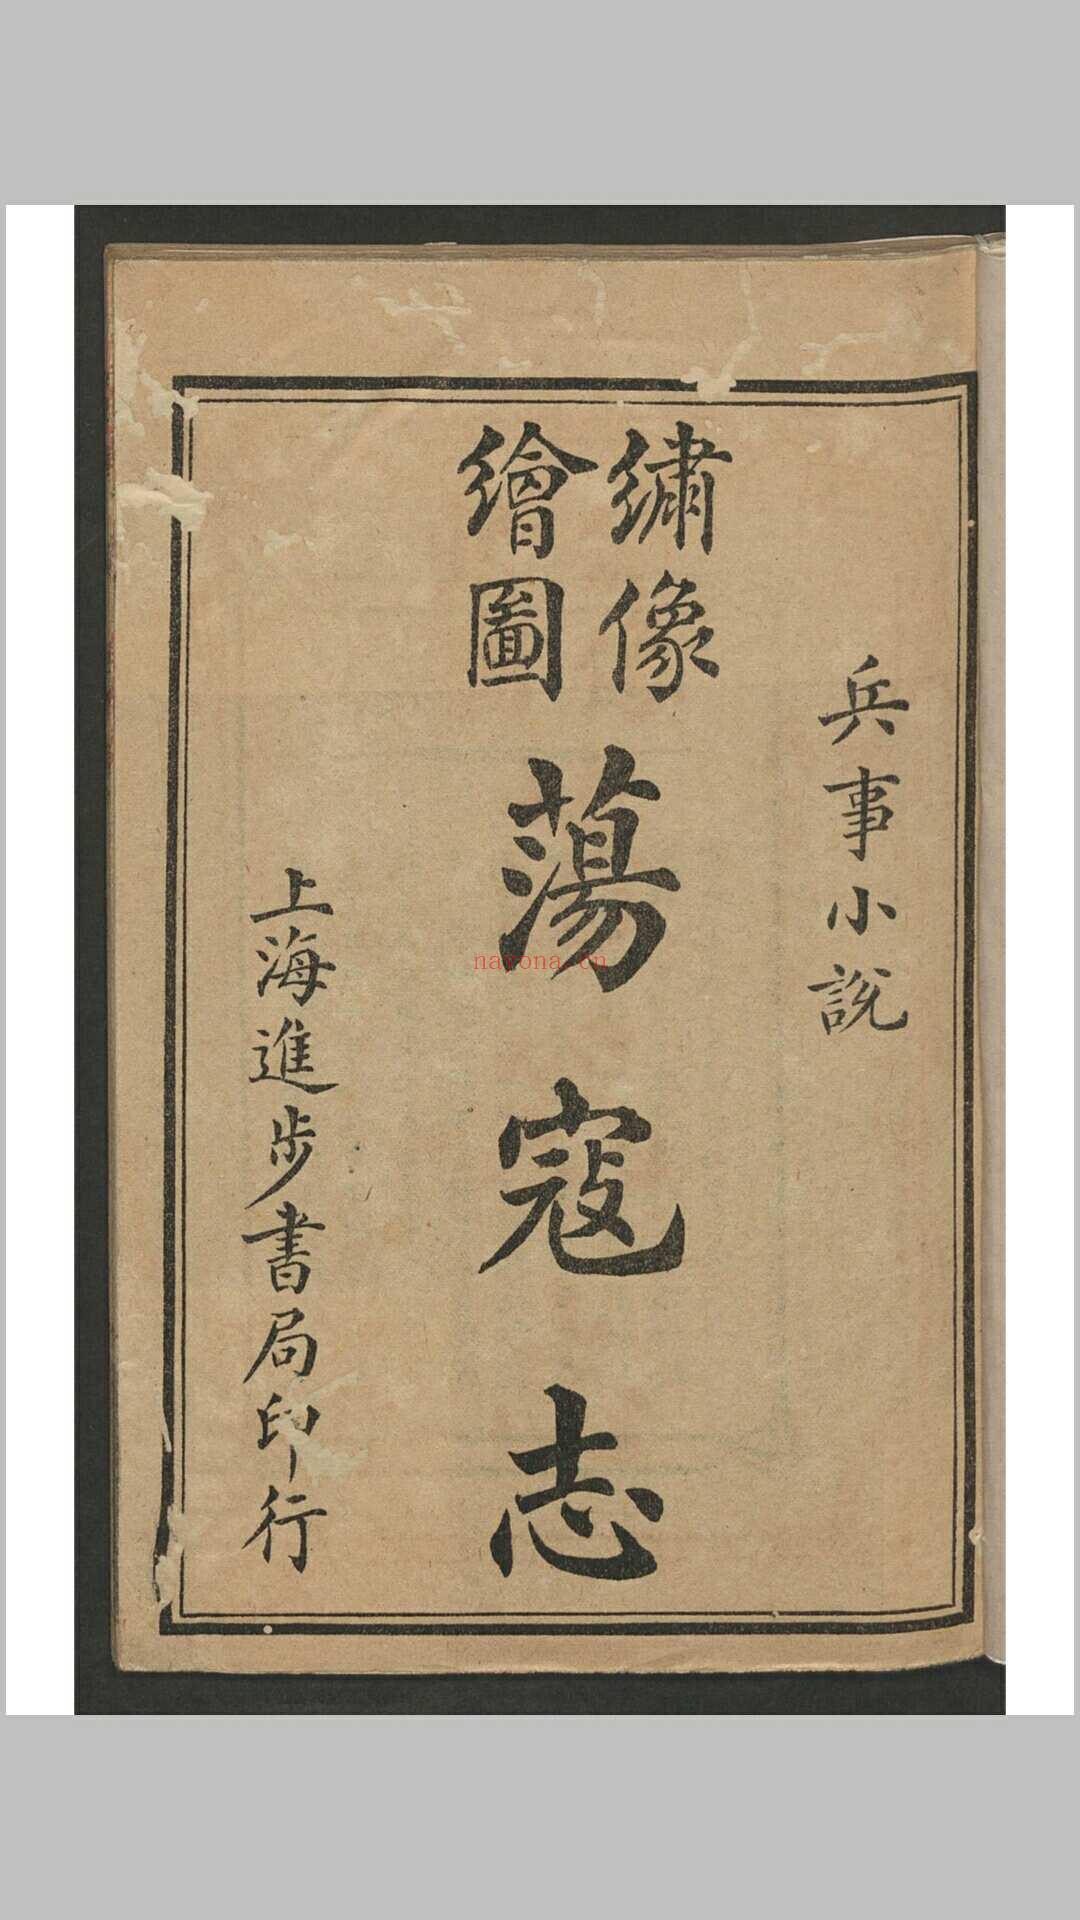 兵事小說
繡像
繪圖
蕩寇志
上海進步書局印行
nayona.cn